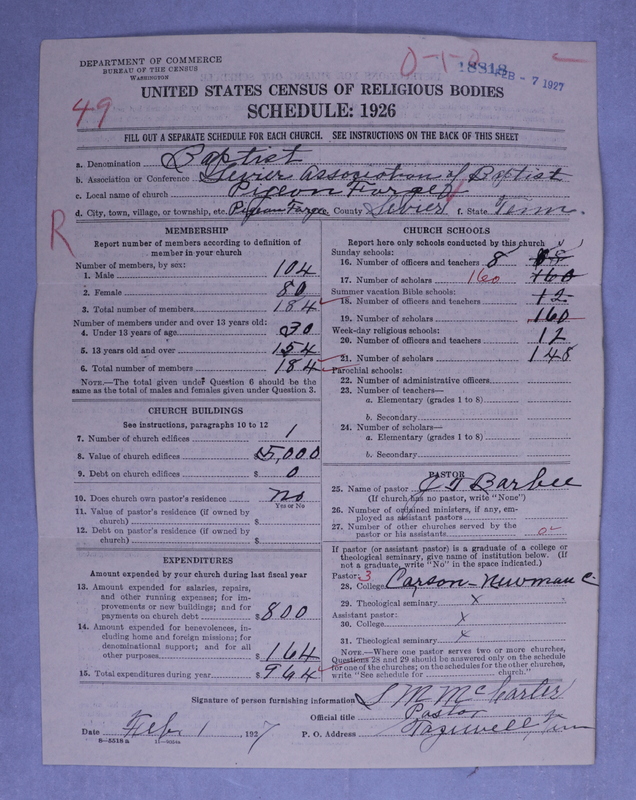 DEPARTMENT OF COMMERCE
BUREAU OF THE CENSUS
WASHINGTON
0-1-0
18818
FEB - 7 1927
49
UNITED STATES CENSUS OF RELIGIOUS BODIES
SCHEDULE: 1926
FILL OUT A SEPARATE SCHEDULE FOR EACH CHURCH. SEE INSTRUCTIONS ON THE BACK OF THIS SHEET
a. Denomination Baptist
b. Association or Conference Sevier Association of Baptist
c. Local name of church Pigeon Forge
d. City, town, village, or township, etc. Pigeon Forge County Sevier f. State Tenn.
R
MEMBERSHIP
Report number of members according to definition of
member in your church
Number of members, by sex:
1. Male 104
2. Female 80
3. Total number of members 184
Number of members under and over 13 years old:
4. Under 13 years of age 30
5. 13 years old and over 154
6. Total number of members 184
NOTE.—The total given under Question 6 should be the
same as the total of males and females given under Question 3.
CHURCH BUILDINGS
See instructions, paragraphs 10 to 12
7. Number of church edifices 1
8. Value of church edifices $5,000
9. Debt on church edifices $ 0
10. Does church own pastor's residence no
Yes or No
11. Value of pastor's residence (if owned by
church) $
12. Debt on pastor's residence (if owned by
church) $
EXPENDITURES
Amount expended by your church during last fiscal year
13. Amount expended for salaries, repairs,
and other running expenses; for im-
provements or new buildings; and for
payments on church debt $800
14. Amount expended for benevolences, in-
cluding home and foreign missions; for
denominational support; and for all
other purposes $164
15. Total expenditures during year $964
CHURCH SCHOOLS
Report here only schools conducted by this church
Sunday schools:
16. Number of officers and teachers 8
17. Number of scholars 160 160
Summer vacation Bible schools:
18. Number of officers and teachers 12
19. Number of scholars 160
Week-day religious schools:
20. Number of officers and teachers 12
21. Number of scholars 148
Parochial schools:
22. Number of administrative officers
23. Number of teachers—
a. Elementary (grades 1 to 8)
b. Secondary
24. Number of scholars—
a. Elementary (grades 1 to 8)
b. Secondary
PASTOR
25. Name of pastor Barbee
(If church has no pastor, write "None")
26. Number of ordained ministers, if any, em-
ployed as assistant pastors
27. Number of other churches served by the
pastor or his assistants 0
If pastor (or assistant pastor) is a graduate of a college or
theological seminary, give name of institution below. (If
not a graduate, write "No" in the space indicated.)
Pastor: 3
28. College Carson-Newman C.
29. Theological seminary x
Assistant pastor:
30. College x
31. Theological seminary x
NOTE.—Where one pastor serves two or more churches,
Questions 28 and 29 should be answered only on the schedule
for one of the churches; on the schedules for the other churches,
write "See schedule for church."
Signature of person furnishing information S M McCarter
Official title Pastor
Date Feb 1, 1927 P. O. Address Tazewell, Tenn
8—5518a